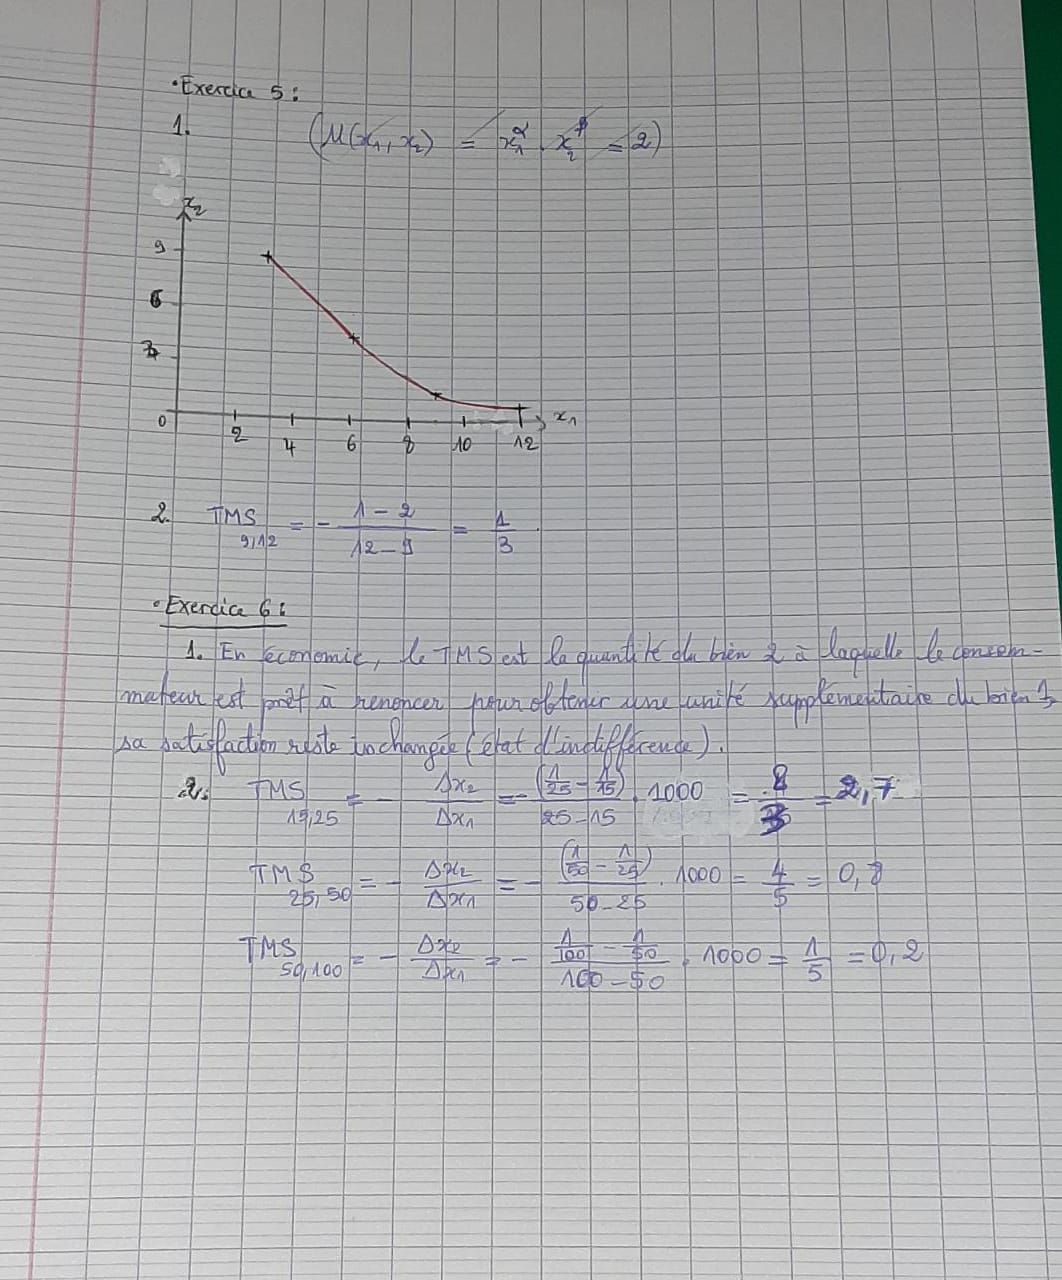 • Exercice 5 :
1. (U(x₁, x₂) = x₁^α . x₂^β = 2)
x₂
9
6
3
0 2 4 6 8 10 12 x₁
2. TMS 9,12 = - (1 - 2)/(12 - 9) = 1/3 .
• Exercice 6 :
1. En économie, le TMS est la quantité du bien 2 à laquelle le consom-
mateur est prêt à renoncer pour obtenir une unité supplémentaire du bien 1,
sa satisfaction reste inchangée (état d'indifférence).
2. TMS 15,25 = - Δx₂/Δx₁ = - (1/25 - 1/15)/(25 - 15) . 1000 = 8/3 = 2,7
TMS 25,50 = - Δx₂/Δx₁ = - (1/50 - 1/25)/(50 - 25) . 1000 = 4/5 = 0,8
TMS 50,100 = - Δx₂/Δx₁ = - (1/100 - 1/50)/(100 - 50) . 1000 = 1/5 = 0,2